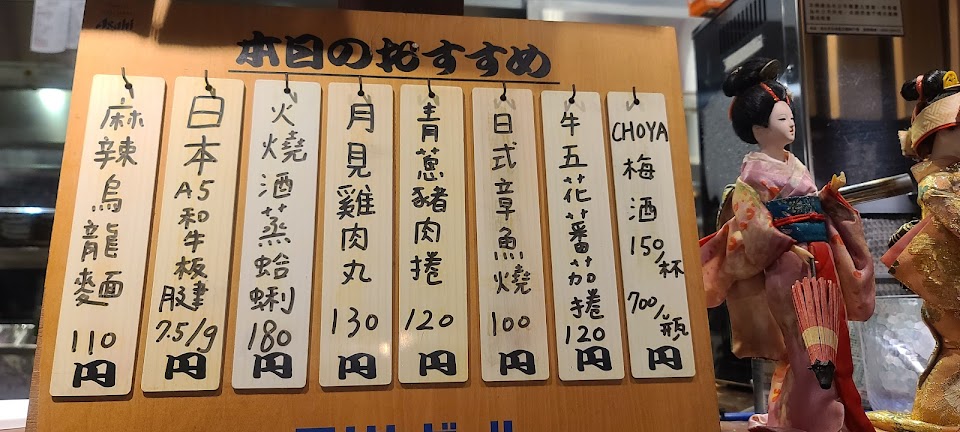 Asahi
本日のおすすめ
麻辣烏龍麵
110
円
日本A5和牛板腱
7.5/g
円
火燒酒蒸蛤蜊
180
円
月見雞肉丸
130
円
青蔥豬肉捲
120
円
日式章魚燒
100
円
牛五花蕃茄捲
120
円
CHOYA
梅酒
150/杯
700/瓶
円